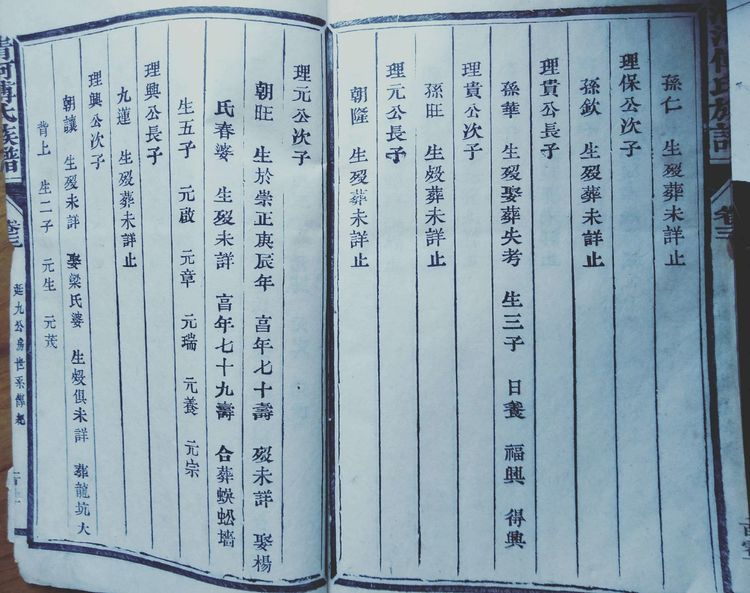 孫仁 生歿葬未詳止
理保公次子
孫欽 生歿葬未詳止
理貴公長子
孫華 生歿娶葬失考 生三子 日養 福興 得興
理貴公次子
孫旺 生歿葬未詳止
理元公長子
朝隆 生歿葬未詳止
理元公次子
朝旺 生於崇正庚辰年 亯年七十壽 歿未詳 娶楊
氏春婆 生歿未詳 亯年七十九壽 合葬蜈蚣墻
生五子 元啟 元章 元瑞 元養 元宗
理興公長子
九蓮 生歿葬未詳止
理興公次子
朝讓 生歿未詳 娶梁氏婆 生歿俱未詳 葬龍坑大
背上 生二子 元生 元茂
清河傅氏族譜
卷三